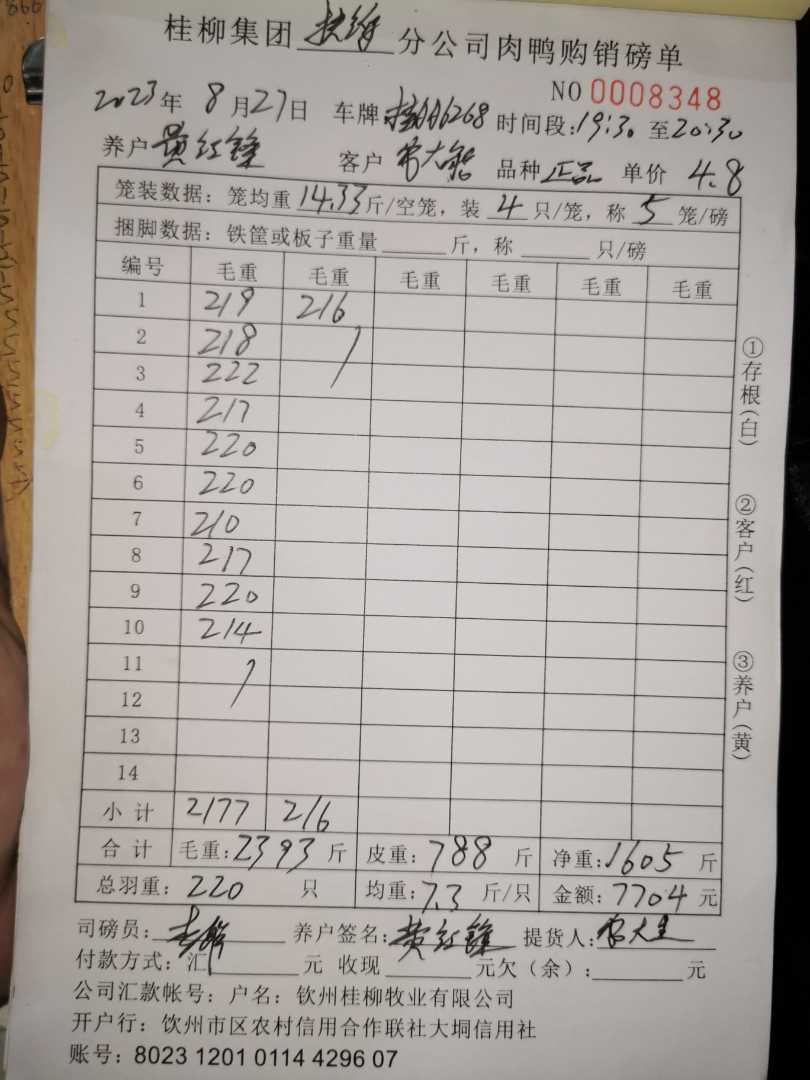 桂柳集团 扶绥 分公司肉鸭购销磅单
NO 0008348
2023年 8月27日 车牌 6268 时间段:19:30 至20:30
养户 黄红锋 客户 大 品种 正品 单价 4.8
笼装数据: 笼均重 14.33斤/空笼, 装 4 只/笼, 称 5 笼/磅
捆脚数据: 铁筐或板子重量______斤, 称______只/磅
编号 毛重 毛重 毛重 毛重 毛重 毛重
1 219 216
2 218
3 222
4 217
5 220
6 220
7 210
8 217
9 220
10 214
11
12
13
14
小 计 2177 216
合 计 毛重:2393 斤 皮重:788 斤 净重:1605 斤
总羽重: 220 只 均重:7.3 斤/只 金额:7704 元
司磅员: 养户签名: 黄红锋 提货人:
付款方式: 汇______元 收现______元欠（余）:______元
公司汇款帐号: 户名: 钦州桂柳牧业有限公司
开户行: 饮州市区农村信用合作联社大垌信用社
账号: 8023 1201 0114 4296 07
①存根(白)
②客户(红)
③养户(黄)